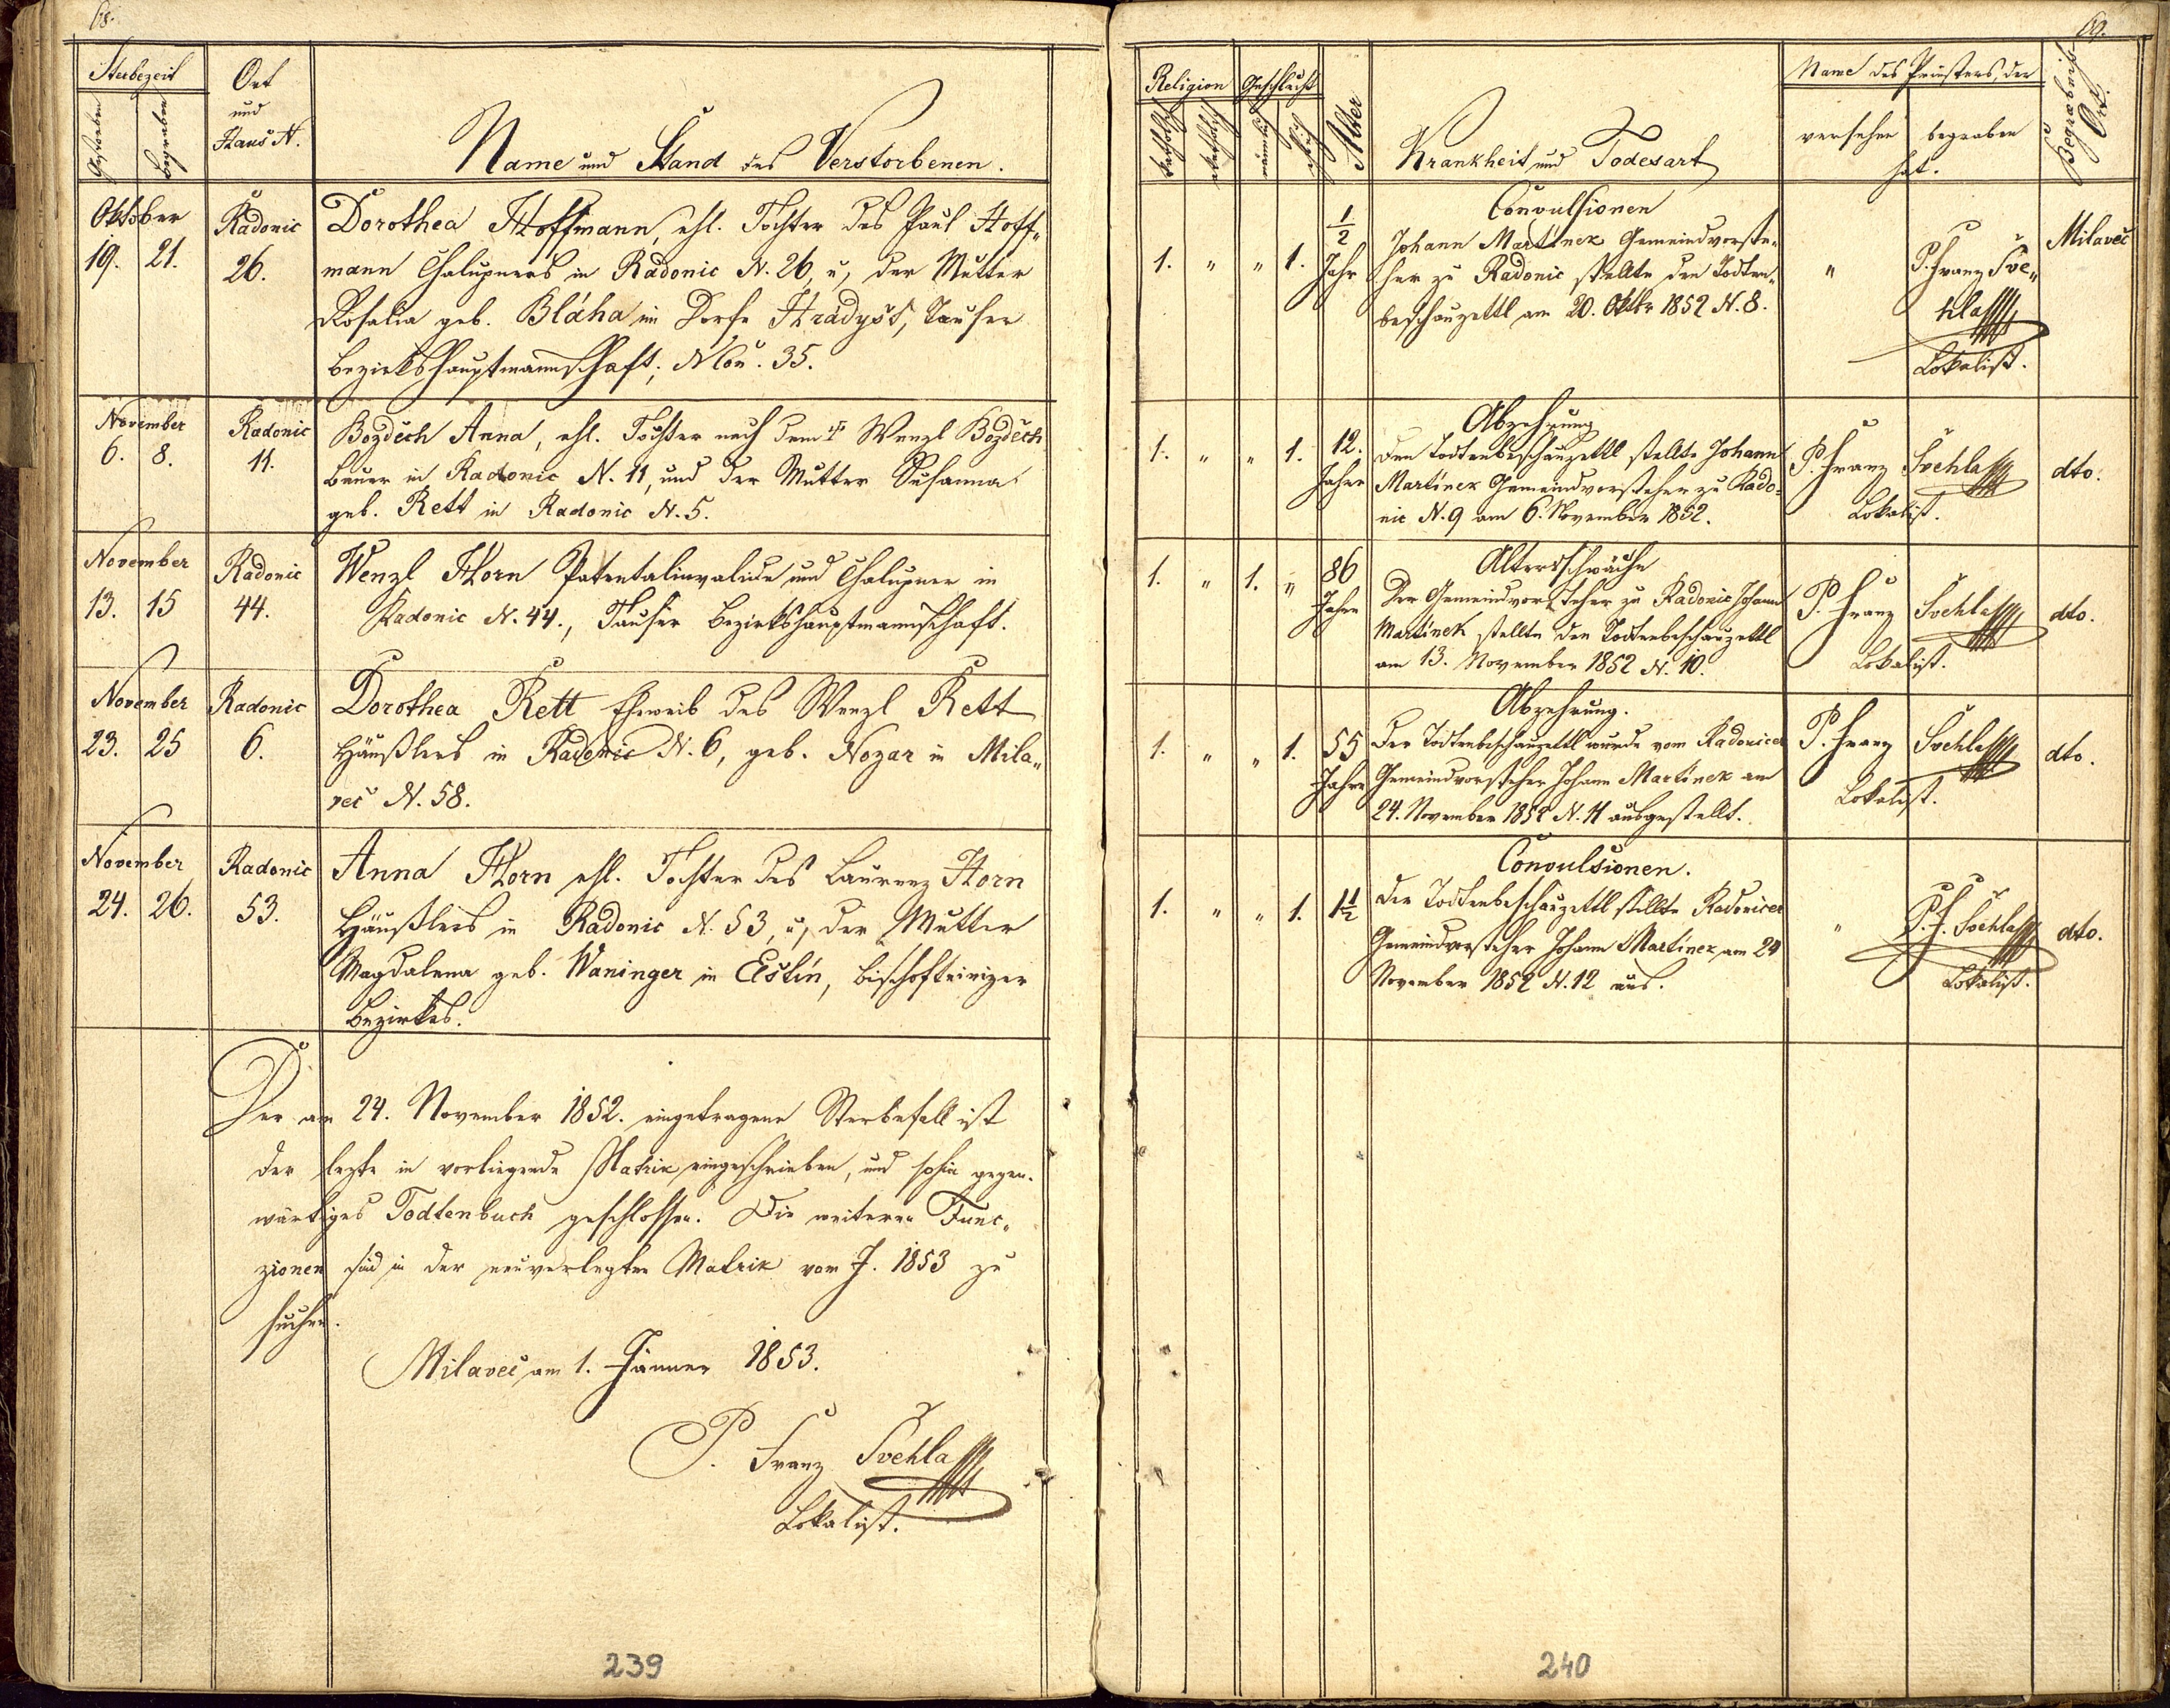 68.
Sterbezeit
Gestorben
Begraben
Ort
und
Haus N.
Name und Stand des Verstorbenen.
Oktober
19. 21.
Radonic
26.
Dorothea Hoffmann, ehl. Tochter des Paul Hoff„
mann Chalupners in Radonic N. 26, u, der Mutter
Rosalia geb. Bláha im Dorfe Hradyšt, Tauser
Bezirkshauptmannschaft; NCon. 35.
November
6. 8.
Radonic
11.
Bozděch Anna, ehl. Tochter nach dem † Wenzl Bozděch
Bauer in Radonic N. 11, und der Mutter Susanna
geb. Rett in Radonic N. 5.
November
13. 15
Radonic
44.
Wenzl Horn Patentalinvalide und Chalupner in
Radonic N. 44., Tauser Bezirkshauptmannschaft.
November
23. 25
Radonic
6.
Dorothea Rett Eheweib des Wenzl Rett
Häußlers in Radonic N. 6, geb. Nozar in Mila„
več N. 58.
November
24. 26.
Radonic
53.
Anna Horn ehl. Tochter des Laurenz Horn
Häußlers in Radonic N. 53, u, der Mutter
Magdalena geb. Waninger in Elstín, Bischofteinizer
Bezirkes.
Der am 24. November 1852. eingetragene Sterbefall ist
der lezte in vorliegende Matrik eingeschrieben, und sohin gegen„
wärtiges Todtenbuch geschlossen. Die weiteren Func„
zionen sind in der neuverlegten Matrik vom J. 1853 zu
suchen.
Milaveč am 1. Jänner 1853.
P. Franz Švehla
Lokalist.
239
69.
Religion
katholisch
Geschlecht
männlich
Alter
Krankheit und Todesart
Name des Priesters, der
versehen begraben
hat.
Begräbniß
Ort.
1. „ „ 1.
1/2
Jahr
Convulsionen
Johann Martinek Gemeindvorste„
her zu Radonic stellte den Todten„
beschauzettl am 20. Oktbr 1852 N. 8.
„
P. Franz Šve„
hla
Lokalist.
Milaveč
1. „ „ 1.
12.
Jahre
Abzehrung
Den Todtenbeschauzettl stellte Johann
Martinek Gemeindvorsteher zu Rado„
nic N. 9 am 6. November 1852.
P. Franz Švehla
Lokalist.
dto.
1. „ 1. „
86
Jahre
Altersschwäche
Der Gemeindvorsteher zu Radonic Johann
Martinek stellte den Todtenbeschauzettl
am 13. November 1852 N. 10.
P. Franz Švehla
Lokalist.
dto.
1. „ „ 1.
55
Jahre
Abzehrung.
Der Todtenbeschauzettl wurde vom Radonicer
Gemeindvorsteher Johann Martinek am
24. November 1852 N. 11 ausgestellt.
P. Franz Švehla
Lokalist.
dto.
1. „ „ 1.
1 1/2
Convulsionen.
Den Todtenbeschauzettl stellte Radonicer
Gemeindvorsteher Johann Martinek am 24
November 1852 N. 12 aus.
„
P. F. Švehla
Lokalist.
dto.
240